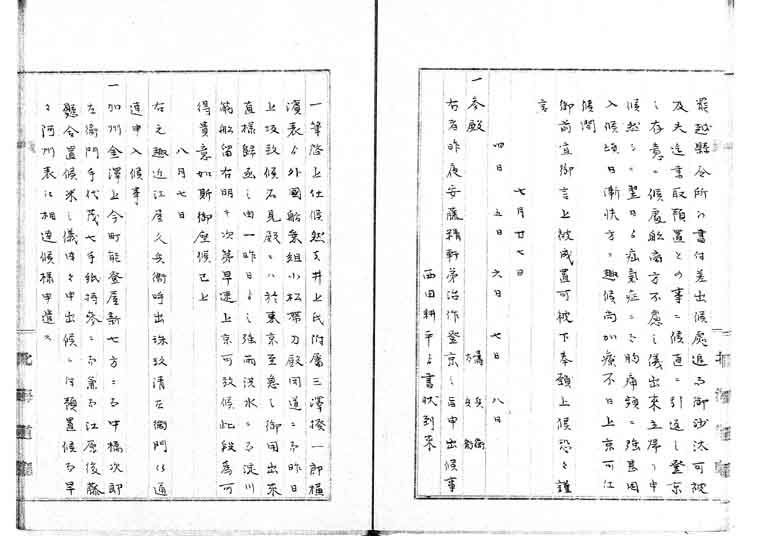 罷越縣令所へ書付差出候處追而御沙汰可被
及夫迄書取預置との事ニ候直ニ引返し登京
之存意ニ候處船南方不慮之儀出来立岸
候然ルニ翌日ゟ疝気症ニ而胸痛頭ニ強甚困
入候頃日漸快方ニ趣候尚加療不日上京可仕
候間
御前宜御言上被成置可被下奉頼上候恐々謹
言
七月廿七日
四日 五日 六日 七日 八日
一参殿
右者昨夜安藤精軒弟治作登京之旨申出候事
西田耕平ゟ書状到来
一筆啓上仕候然者井上氏附属三澤揆一郎横
濱表ゟ外國船乗組小松帯刀殿同道ニ而昨日
上坂致候石見殿ニハ於東京至急之御用出来
直様帰函之由一昨日ゟ之強雨洪水ニ而淀川
筋船留右明キ次第早速上京可致候此段為可
得貴意如斯御座候已上
八月七日
右之趣近江屋久兵衛呼出珠玖清左衛門へ通
達申入候事
一加州金澤上今町能登屋新七方ニ而中橋次郎
左衛門手代茂七手紙持参ニ而兼而江原後藤
懸合置候米之儀申出候ニ付預置候而早
々阿州表江相達候様申遣ス